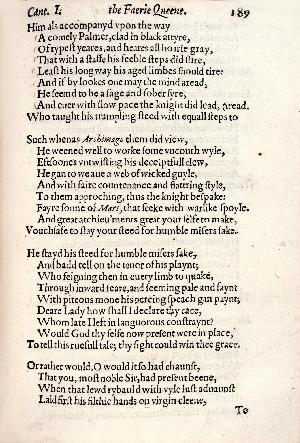 Cant. I. the Faerie Queene. 189
Him als accompanyd vpon the way
A comely Palmer, clad in black attyre,
Of rypest yeares, and heares all hoarie gray,
That with a staffe his feeble steps did stire,
Least his long way his aged limbes should tire:
And if by lookes one may the mind aread,
He seemd to be a sage and sober syre,
And euer with slow pace the knight did lead,
Who taught his trampling steed with equall steps to tread.
Such whenas Archimago them did view,
He weened well to worke some vncouth wyle,
Eftsoones vntwisting his deceiptfull clew,
He gan to weaue a web of wicked guyle,
And with faire countenance and flattring style,
To them approching, thus the knight bespake:
Fayre sonne of Mars, that seeke with warlike spoyle,
And great atchieu'ments great your selfe to make,
Vouchsafe to stay your steed for humble misers sake.
He stayd his steed for humble misers sake,
And badd tell on the tenor of his playnt;
Who feigning then in euery limb to quake,
Through inward feare, and seeming pale and faynt
With piteous mone his percing speach gan paynt;
Deare Lady how shall I declare thy cace,
Whom late I left in languorous constraynt?
Would God thy selfe now present were in place,
To tell this ruefull tale; thy sight could win thee grace.
Or rather would, O would it so had chaunst,
That you, most noble Sir, had present beene,
When that lewd rybauld with vyle lust aduaunst
Laid first his filthie hands on virgin cleene,
To